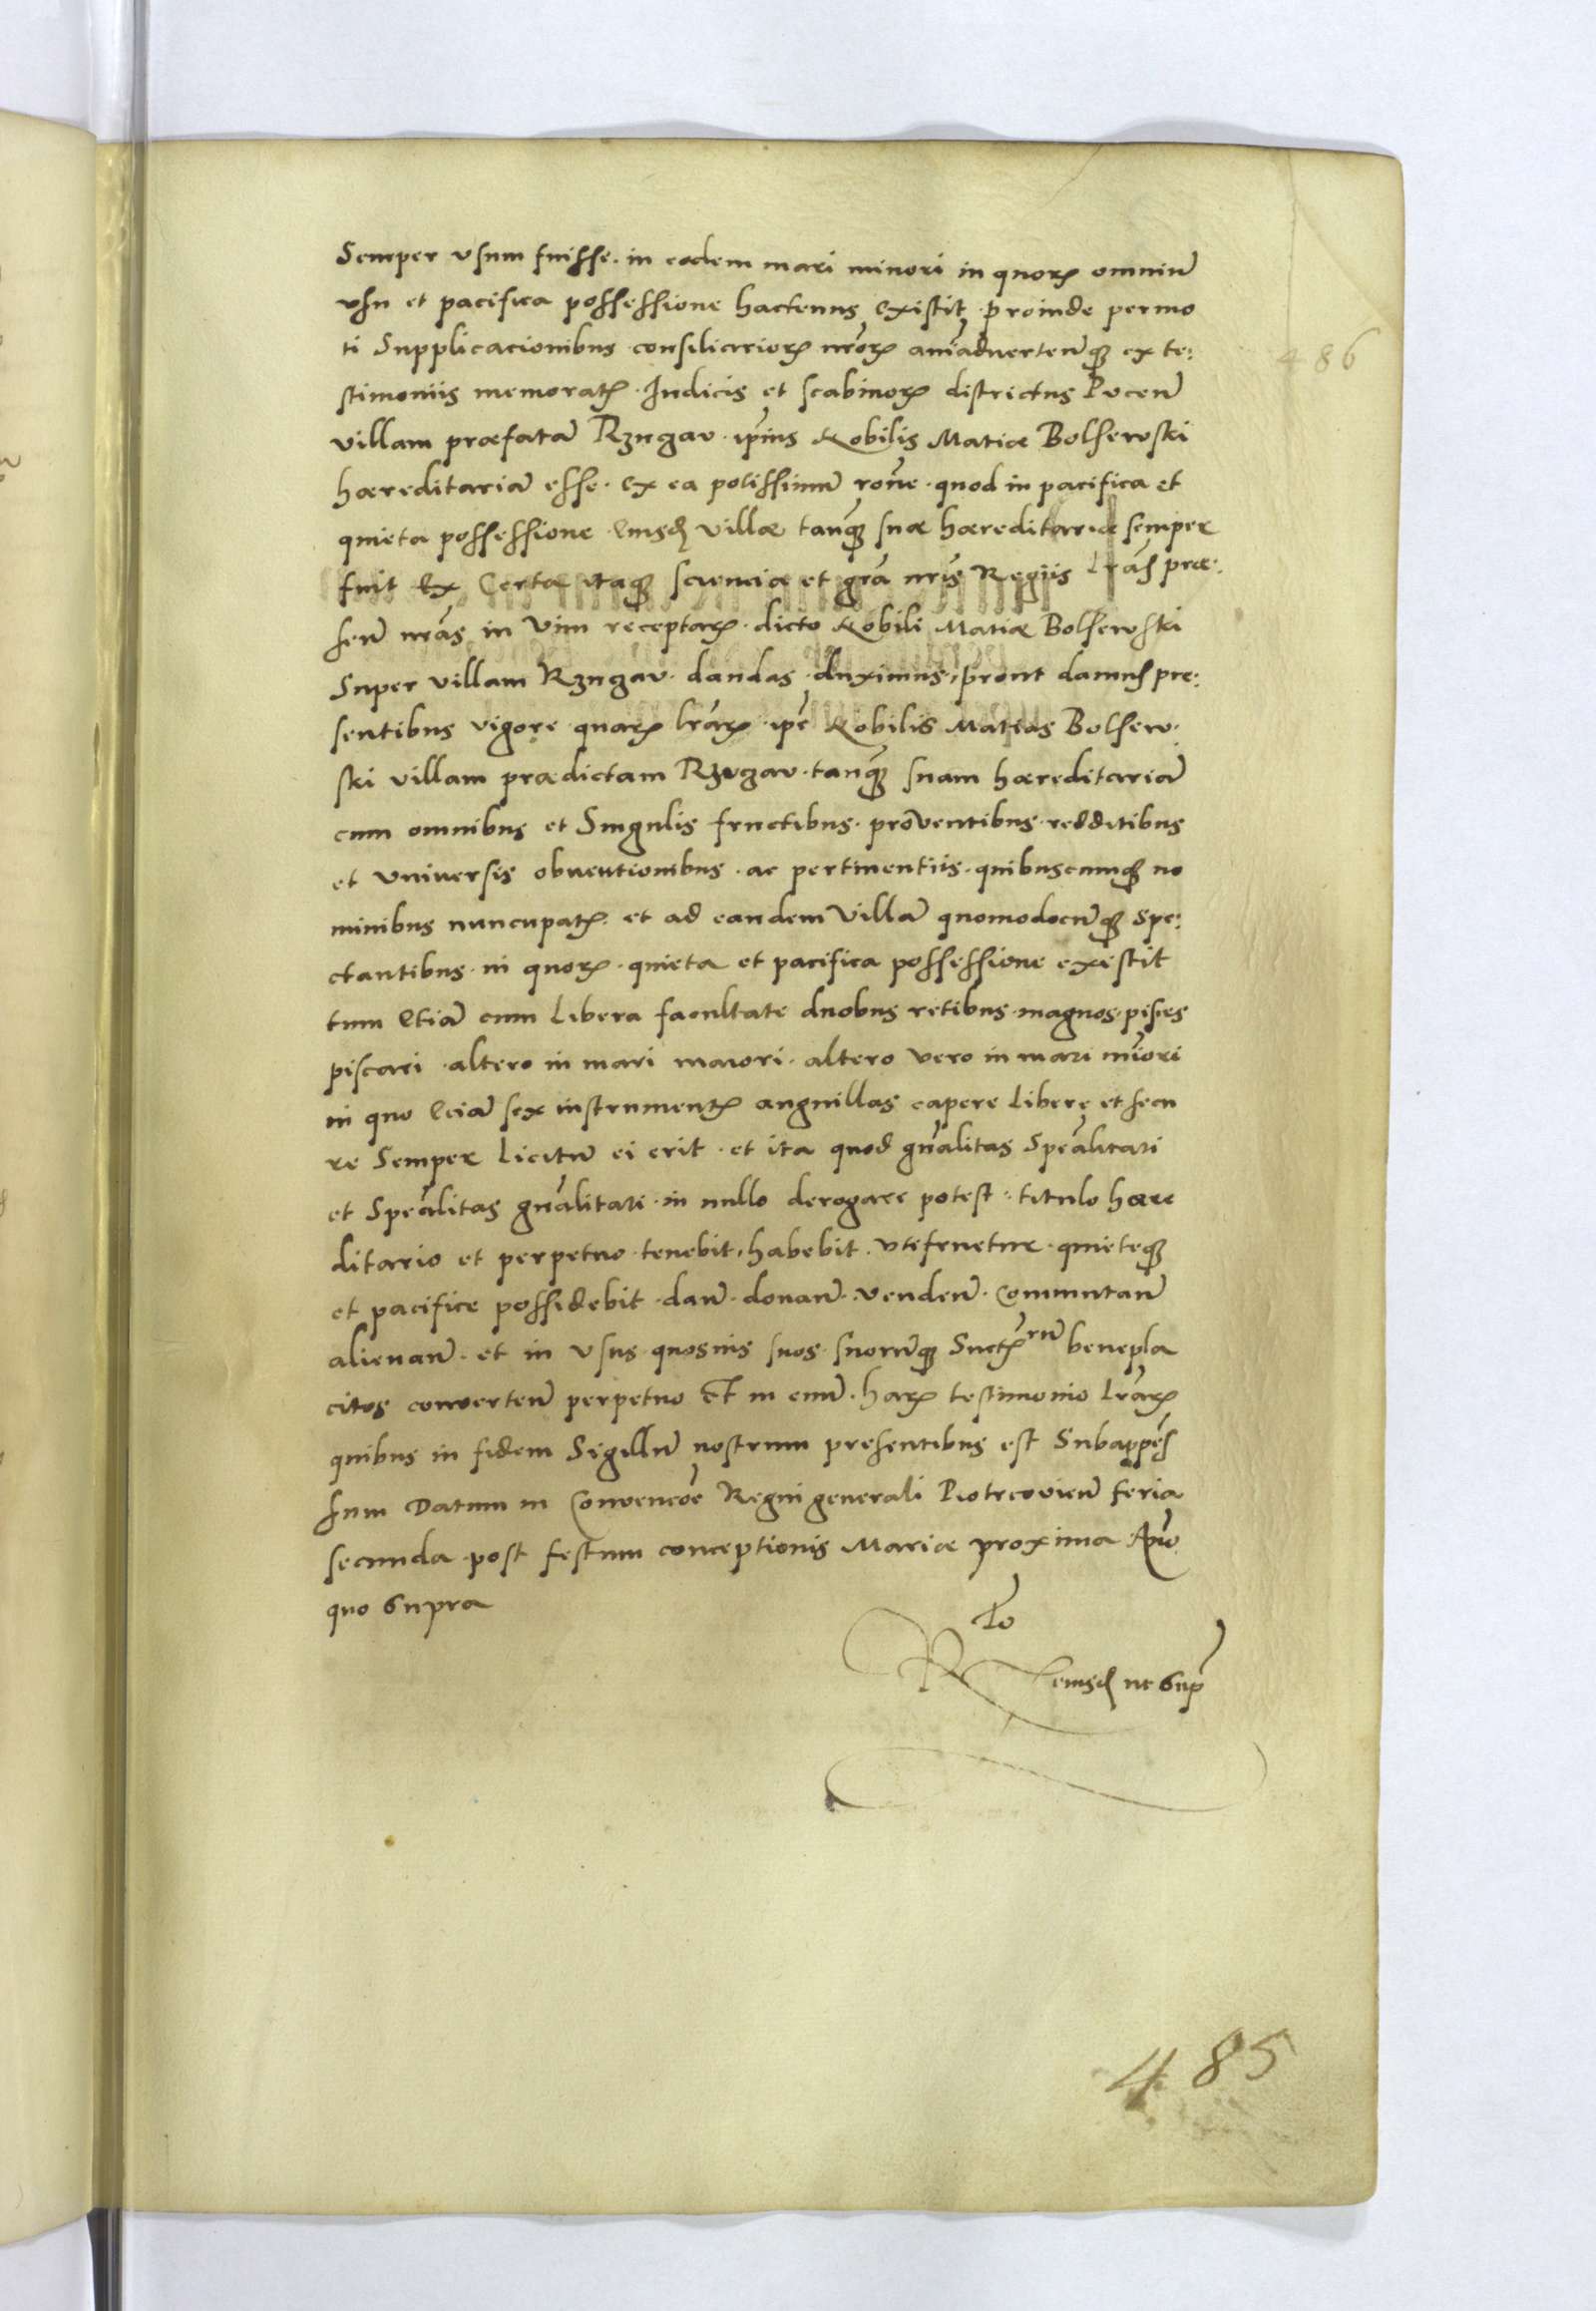 Semper vsum fuisse. in eadem mari minori in quoꝝ omniū
vsu et pacifica possessione hactenus existit. proinde permo
ti Supplicacionibus consiliarioꝝ nr̄oꝝ aniaduertenꝗ ex te:
486
stimoniis memoratꝝ. Iudicis et scabinoꝝ districtus Pucen̄
villam præfatā Rzuczav. ip̄ius Nobilis Matiæ Bolsewski
hæreditariā esse. ex ea potissimū rōne. quod in pacifica et
quieta possessione eiusd villæ tanꝗ suæ hæreditariæ semper
fuit Ex Certa itaꝗ sciencia et gr̄a nr̄is Regiis Lr̄as præ:
sen̄ nr̄as in Vim receptaꝝ. dicto Nobili Matiæ Bolsewski
Super villam Rzuczav. dandas duximus, prout damus pre:
sentibus vigore quaꝝ lr̄aꝝ. ip̄e Nobilis Matias Bolsew.
ski villam prædictam Rzuczav. tanꝗ suam hæreditariā
cum omnibus et Singulis fructibus. proventibus. redditibus
et vniversis obuentionibus. ac pertinentiis. quibuscumꝗ no
minibus nuncupatꝝ. et ad eandem Villā quomodocūꝗ spe:
ctantibus. in quoꝝ. quieta et pacifica possessione existit
tum etiā cum Libera facultate duobus retibus magnos pisces
piscari. altero in mari maiori. altero vero in mari mīori
in quo eciā sex instrumentꝝ anguillas capere Libere et secu
re Semper Licitū ei erit. et ita quod gn̄alitas Spēalitati
et Spēalitas gn̄alitati. in nullo derogare potest. titulo hære
ditario et perpetuo tenebit, habebit. vtefruetur. quieteꝗ
et pacifice possidebit. dan̄. donan̄. venden̄. Commutan̄
alienan̄. et in vsus quosuis suos suorūꝗ Suctꝝ rū benepla
citos conuerten̄ perpetuo Et in euū. haꝝ testimonio lr̄aꝝ
quibus in fidem Sigillū nostrum presentibus est Subappēs
sum Datum in Convencōe Regni generali Piotrcovien̄ feria
secunda post festum conceptionis Mariæ proxima Año
quo supra
Rto
eiusd ut sup̄
485